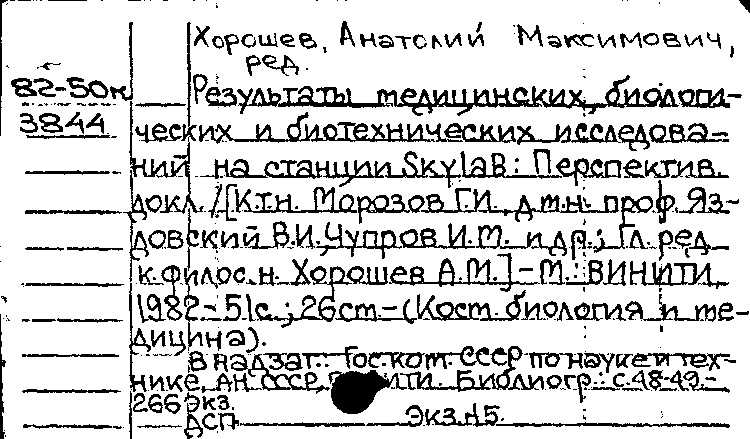 Хорошев, Анатолий Максимович,
ред.
82-50к Результаты медицинских, биологи-
3844 ческих и биотехнических исследова-
ний на станции SkylaB: Перспектив.
докл. /[К.т.н. Морозов Г.И., д.т.н. проф. Яз-
довский В.И., Чупров И.М. и др.; Гл. ред.
к.филос.н. Хорошев А.М.]-М.: ВИНИТИ,
1982-51с.; 26cm-(Косм. биология и ме-
дицина).
В надзаг.: Гос. ком. СССР по науке и тех-
нике, АН СССР, Библиогр.: с.48-49.-
266 экз.
ДСП Экз.45.